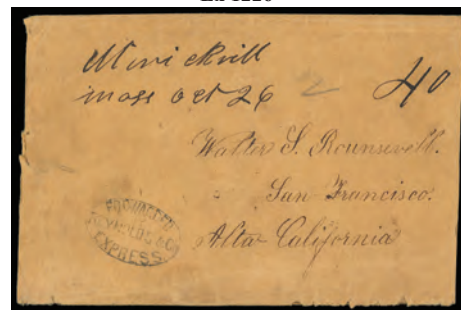 mass oct 26
40
Walter S. Rounsevell.
San Francisco.
Alta California
EXPRESS